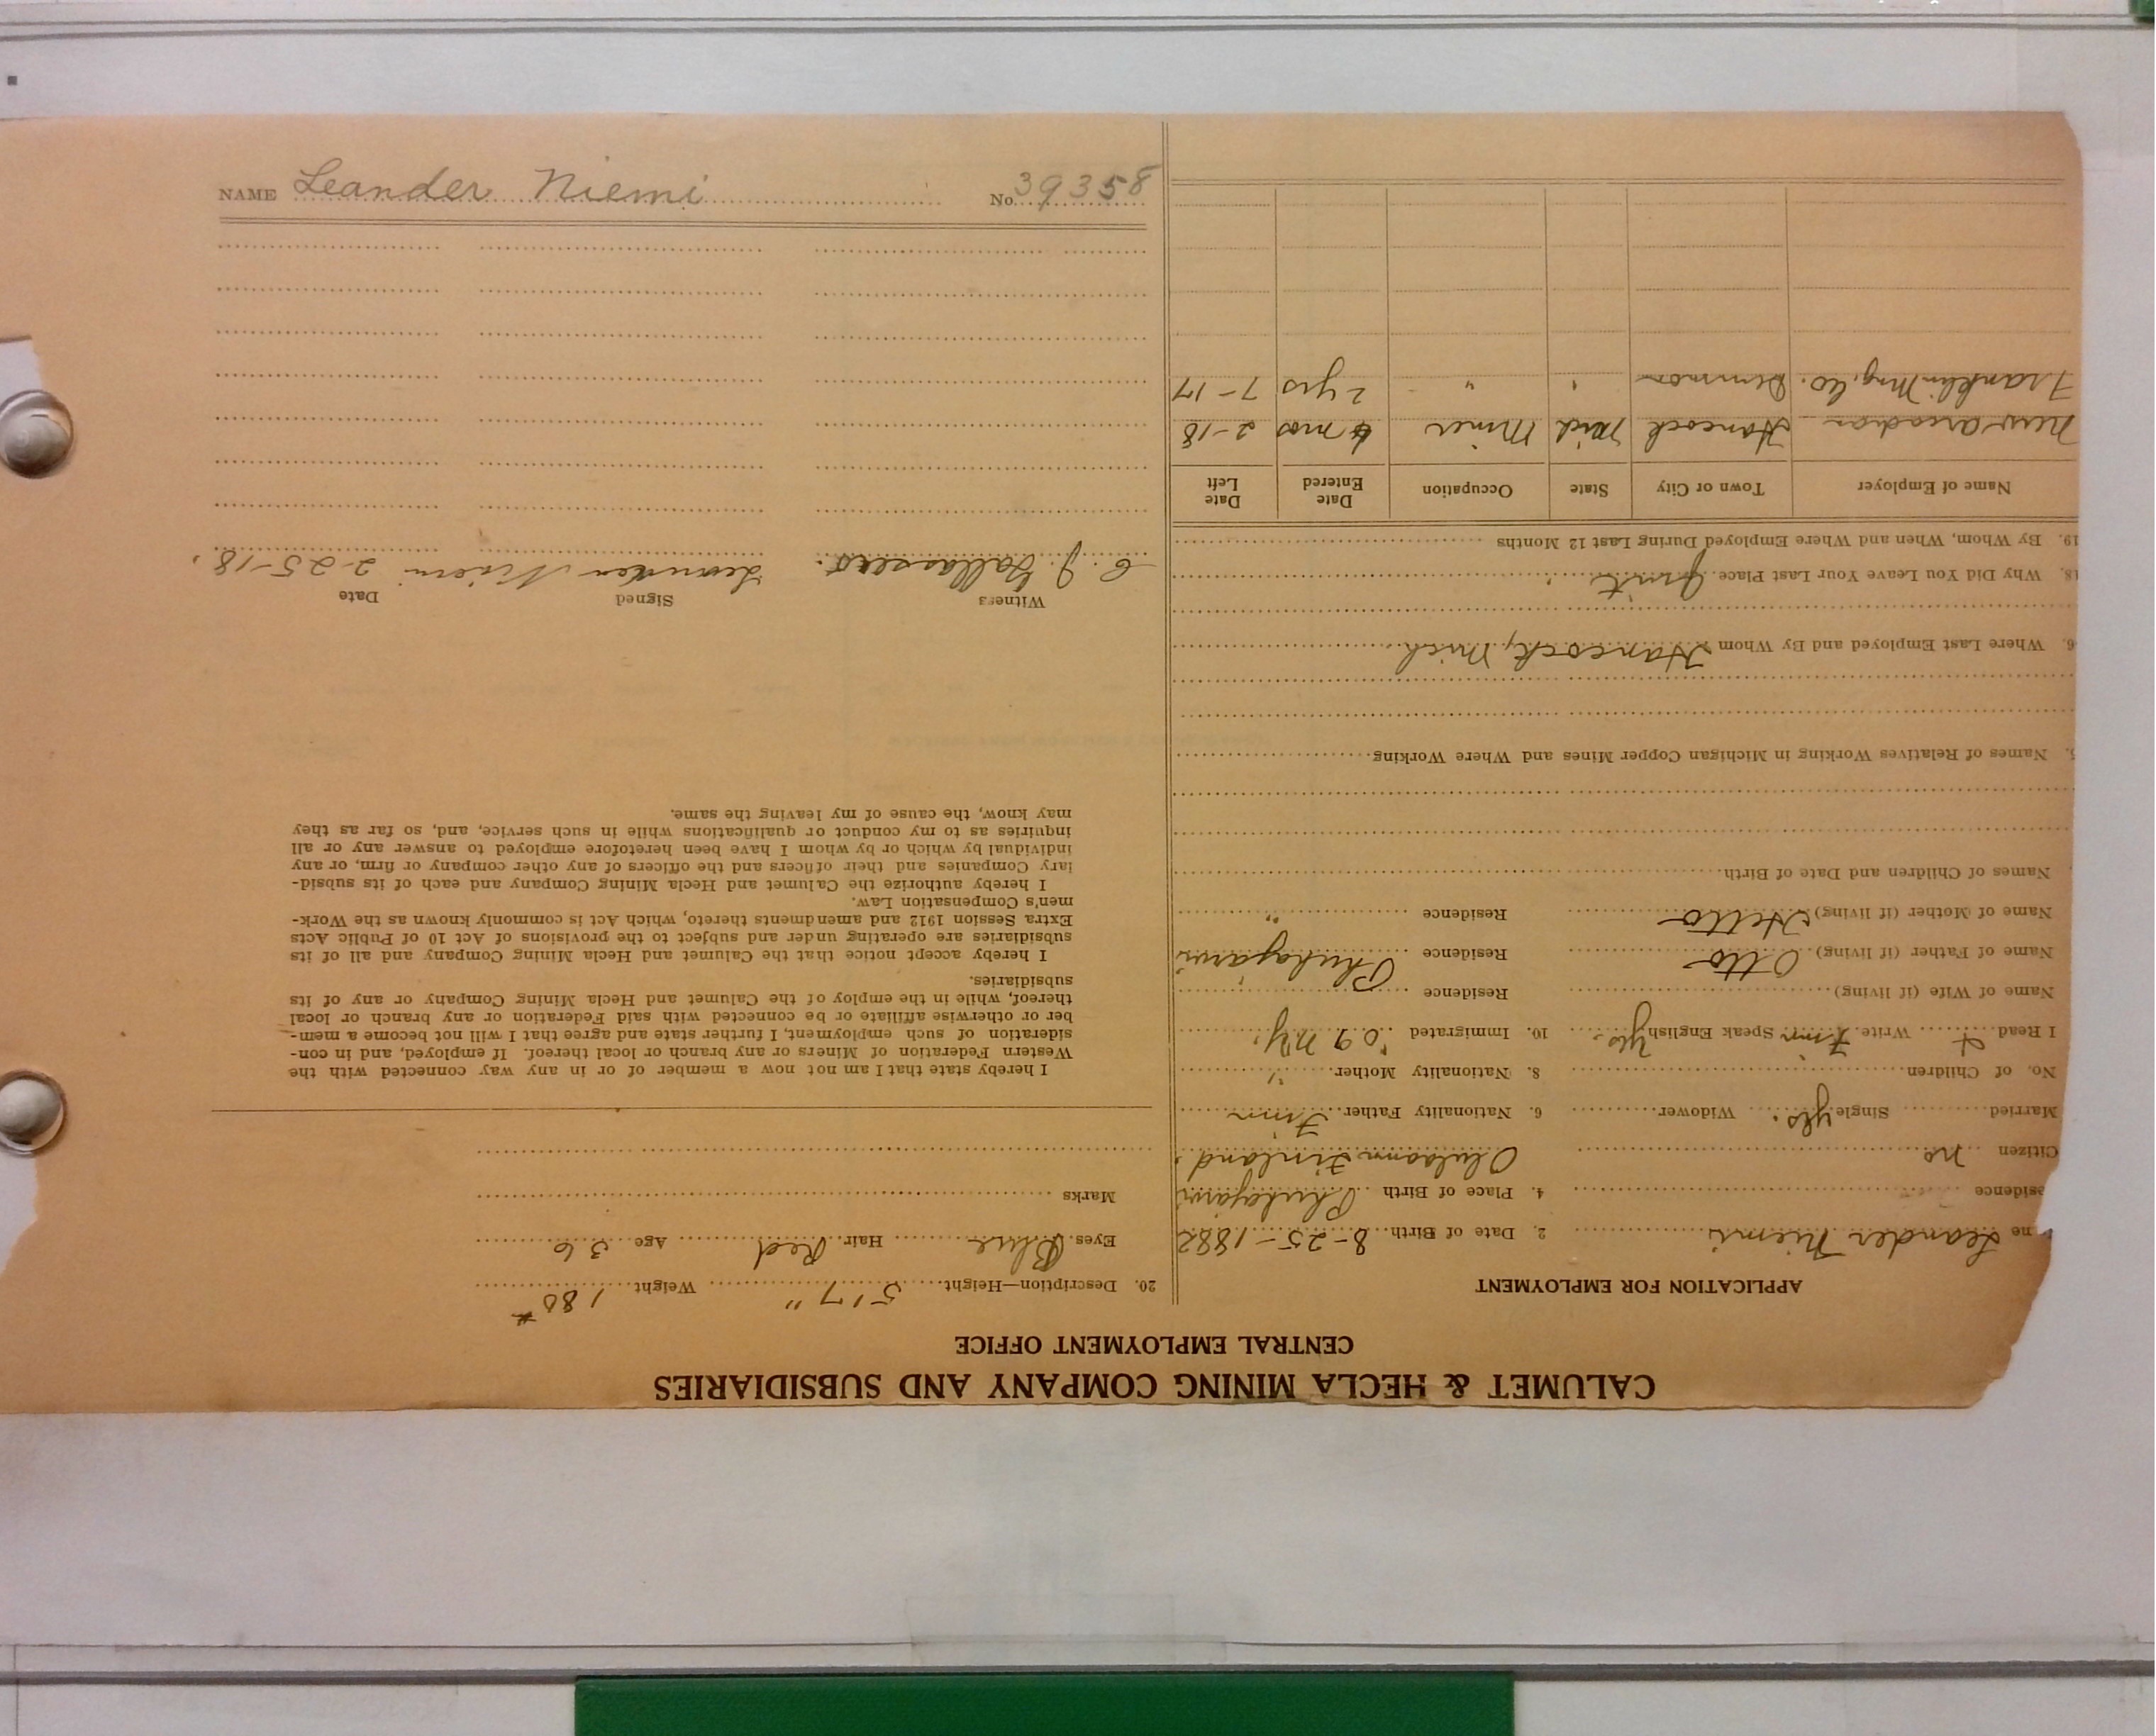 CALUMET & HECLA MINING COMPANY AND SUBSIDIARIES
CENTRAL EMPLOYMENT OFFICE
APPLICATION FOR EMPLOYMENT
me Leander Niemi 2. Date of Birth 8-25-1882
esidence 4. Place of Birth
Citizen no Finland
Married Single yes. Widower 6. Nationality Father Finn
No. of Children 8. Nationality Mother "
I Read Write Finn Speak English yes. 10. Immigrated '09 N.Y.
Name of Wife (if living) Residence
Name of Father (if living) Otto Residence
Name of Mother (if living) Residence "
Names of Children and Date of Birth
5. Names of Relatives Working in Michigan Copper Mines and Where Working
6. Where Last Employed and By Whom Hancock, Mich
18. Why Did You Leave Your Last Place Quit
19. By Whom, When and Where Employed During Last 12 Months
Name of Employer Town or City State Occupation Date Entered Date Left
New Arcadian Hancock Mich Miner 6 mos 2-18
Franklin Mng. Co. Demmon " " 2 yrs 7-17
20. Description—Height 5'7" Weight 180 #
Eyes Blue Hair Red Age 36
Marks
I hereby state that I am not now a member of or in any way connected with the
Western Federation of Miners or any branch or local thereof. If employed, and in con-
sideration of such employment, I further state and agree that I will not become a mem-
ber or otherwise affiliate or be connected with said Federation or any branch or local
thereof, while in the employ of the Calumet and Hecla Mining Company or any of its
subsidiaries.
I hereby accept notice that the Calumet and Hecla Mining Company and all of its
subsidiaries are operating under and subject to the provisions of Act 10 of Public Acts
Extra Session 1912 and amendments thereto, which Act is commonly known as the Work-
men's Compensation Law.
I hereby authorize the Calumet and Hecla Mining Company and each of its subsid-
iary Companies and their officers and the officers of any other company or firm, or any
individual by which or by whom I have been heretofore employed to answer any or all
inquiries as to my conduct or qualifications while in such service, and, so far as they
may know, the cause of my leaving the same.
Witness Signed Date
C. J. Leander Niemi 2-25-18.
NAME Leander Niemi No. 39358